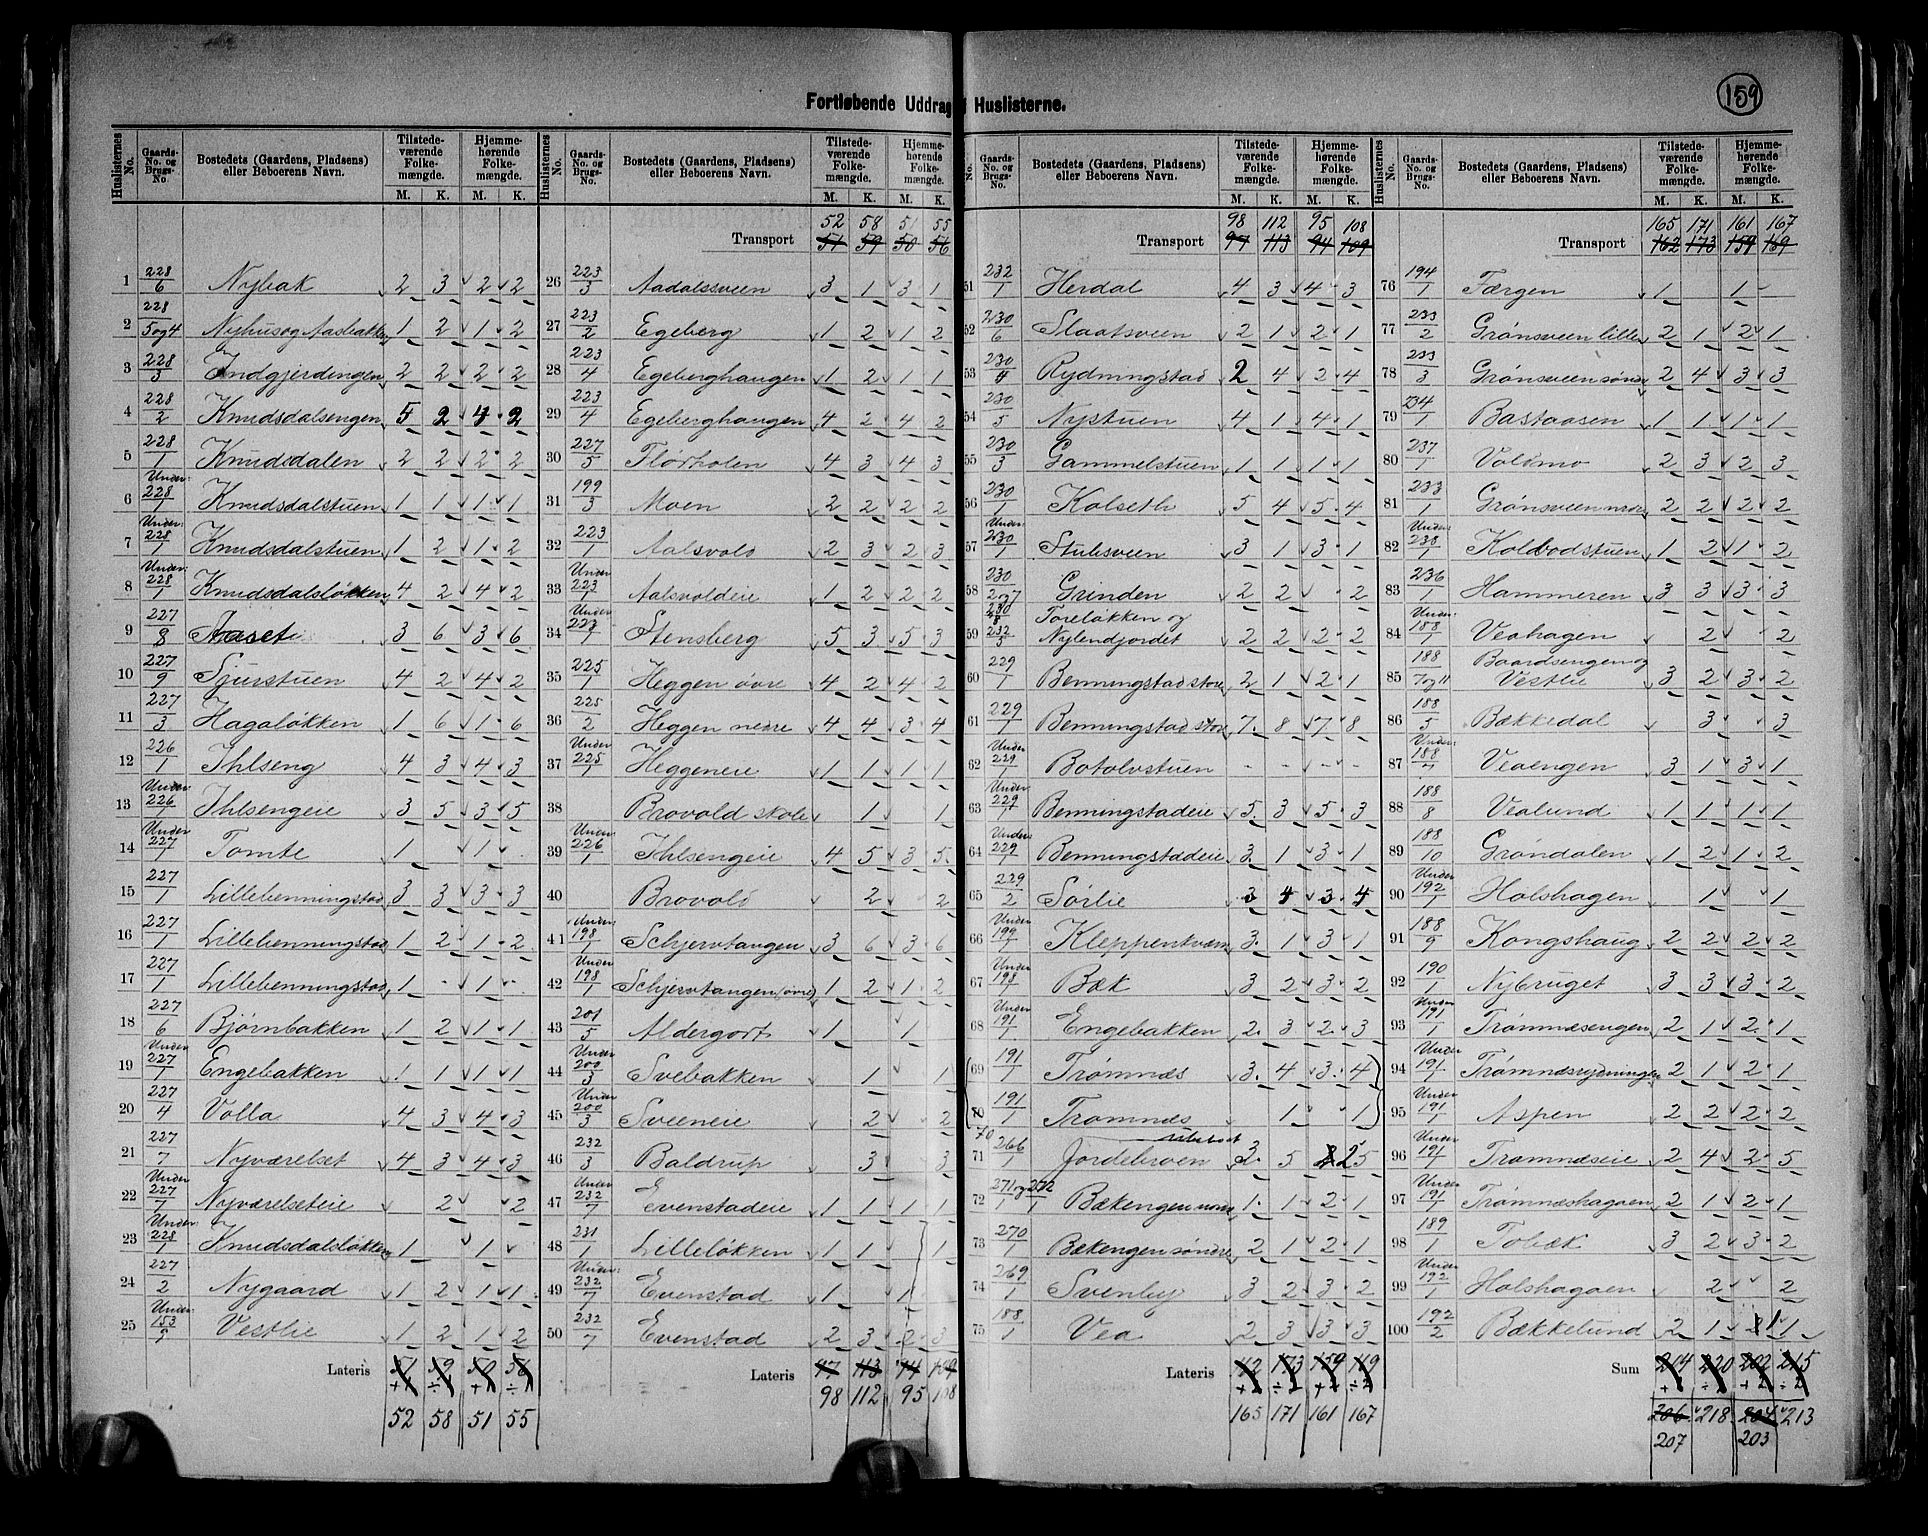 159
Fortløbende Uddrag Huslisterne.
Huslisternes No. | Gaards-No. og Brugs-No. | Bostedets (Gaardens, Pladsens) eller Beboerens Navn. | Tilstedeværende Folkemængde. M. K. | Hjemmehørende Folkemængde. M. K.
1 228/6 Nybak 2 3 2 2
2 228/5og4 Nyhus og Aasbakken 1 2 1 2
3 228/3 Indgjerdingen 2 2 2 2
4 228/2 Knudsdalsengen 5 2 4 2
5 228/1 Knudsdalen 2 2 2 2
6 Under: 228/1 Knudsdalstuen 1 1 1 1
7 Under: 228/1 Knudsdalstuen 1 2 1 2
8 Under: 228/1 Knudsdalsløkken 4 2 4 2
9 227/8 Aaset 3 6 3 6
10 227/9 Sjurstuen 4 2 4 2
11 227/3 Hagaløkken 1 6 1 6
12 226/1 Ihlseng 4 3 4 3
13 Under 226/1 Ihlsengeie 3 5 3 5
14 Under 227/1 Tomte 1 1
15 227/1 Lillebenningstad 3 3 3 3
16 227/1 Lillebenningstad 1 2 1 2
17 227/1 Lillebenningstad 1 - 1 -
18 227/6 Bjørnbakken 1 2 1 1
19 Under 227/1 Engebakken 1 1 1 1
20 227/4 Volla 4 3 4 3
21 227/7 Nyværelset 4 3 4 3
22 Under 227/7 Nyværelseteie 2 2
23 Under: 228/1 Knudsdalsløkken 1 1
24 227/2 Nygaard 1 2 1 1
25 Under: 153/9 Vestlie 1 2 1 2
Lateris 51 59 50 56
+1 ÷1 +1 ÷1
52 58 51 55
Huslisternes No. | Gaards-No. og Brugs-No. | Bostedets (Gaardens, Pladsens) eller Beboerens Navn. | Tilstedeværende Folkemængde. M. K. | Hjemmehørende Folkemængde. M. K.
52 58 51 55
Transport 51 59 50 56
26 223/3 Aadalssveen 3 1 3 1
27 223/2 Egeberg 1 2 1 2
28 223/4 Egeberghaugen 1 2 1 1
29 223/4 Egeberghaugen 4 2 4 2
30 227/5 Flørholen 4 3 4 3
31 199/3 Moen 2 2 2 2
32 223/1 Aalsvold 2 3 2 3
33 Under 223/1 Aalsvoldeie 1 2 2 2
34 Under 223/1 Stensberg 5 3 5 3
35 225/1 Heggen øvre 4 2 4 2
36 225/2 Heggen nedre 4 4 3 4
37 Under 225/1 Heggeneie 1 1 1 1
38 Brovold skole 1 1
39 Under: 226/1 Ihlsengeie 4 5 3 5
40 Brovold 2 2
41 Under: 198/1 Schjervtangen 3 6 3 6
42 Under 198/1 Schjervtangen (øvre) 1 2 1 2
43 201/5 Aldergort 1 1
44 Under 200/3 Svebakken 1 1
45 Under 200/3 Sveeneie 2 2
46 232/3 Baldrup 3 3
47 Under 232/7 Evenstadeie 1 1 1 1
48 231/1 Lilleløkken 1 1 1
49 Under: 232/7 Evenstad 1 1
50 232/7 Evenstad 2 3 2 3
Lateris 97 113 94 109
98 112 95 108
No. | Gaards-No. og Brugs-No. | Bostedets (Gaardens, Pladsens) eller Beboerens Navn. | Tilstedeværende Folkemængde. M. K. | Hjemmehørende Folkemængde. M. K.
98 112 95 108
Transport 97 113 94 109
51 232/1 Herdal 4 3 4 3
52 230/6 Slaatsveen 2 1 2 1
53 230/4 Rydningstad 2 4 2 4
54 230/5 Nystuen 4 1 4 1
55 230/3 Gammelstuen 1 1 1 1
56 230/1 Kolseth 5 4 5 4
57 Under 230/1 Stubsveen 3 1 3 1
58 230/2og7 Grinden 2 2 2
59 230/8 232/5 Toreløkken og Nylendjordet 2 2 2 2
60 229/1 Benningstad store 2 1 2 1
61 229/1 Benningstad store 7 8 7 8
62 Under 229/1 Botolvstuen - - - -
63 Under: 229/1 Benningstadeie 5 3 5 3
64 Under 229/1 Benningstadeie 3 1 3 1
65 229/2 Sørlie 3 4 3 4
66 Under 199/1 Kleppentværn 3 1 3 1
67 Under 198/1 Bæk 3 2 3 2
68 Under 191/1 Engebakken 2 3 2 3
69 191/1 Trømnæs 3 4 3 4
70 191/1 Trømnæs 1 1
70 71 266/1 Jordebroen 3 5 2 5
72 271 og 272/1 1 Bækengen nordre 1 1 2 1
73 270/1 Bækengen søndre 2 1 2 1
74 269/1 Svenby 3 2 3 2
75 188/1 Vea 2 3 3 3
Lateris 162 173 159 169
165 171 161 167
Huslisternes No. | Gaards-No. og Brugs-No. | Bostedets (Gaardens, Pladsens) eller Beboerens Navn. | Tilstedeværende Folkemængde. M. K. | Hjemmehørende Folkemængde. M. K.
165 171 161 167
Transport 162 173 159 169
76 194/1 Færgen 1 1
77 233/2 Grønsveen lille 2 1 2 1
78 233/3 Grønsveen søndre 2 4 3 3
79 234/1 Bastaasen 1 1 1 1
80 237/1 Voldmo 2 3 2 3
81 233/1 Grønsveen nordre 2 2 2 2
82 Under: 238/1 Kolbodstuen 1 2 1 2
83 236/1 Hammeren 3 3 3 3
84 Under: 188/1 Veahagen 2 2
85 188/7og11 Baardsengen og Vestlie 3 2 3 2
86 188/5 Bækkedal 3 3
87 Under: 188/7 Veaengen 3 1 3 1
88 188/8 Vealund 1 1 1 1
89 188/10 Grøndalen 1 2 1 2
90 Under 192/1 Holshagen 1 1
91 188/9 Kongshaug 2 2 2 2
92 190/1 Nybruget 3 3 3 2
93 191/1 Trømnæsengen 2 1 2 1
94 Under 191/1 Trømnæsrydningen 2 1 2 1
95 Under 191/1 Aspen 2 2 2 2
96 Under 191/1 Trømnæseie 2 4 2 5
97 Under 191/1 Trømnæshagaen 2 1 2 1
98 189/1 Tobæk 3 2 3 2
99 Under 192/1 Holshagaen 2 2
100 192/2 Bækkelund 2 1 1 1
Sum 204 220 202 215
206 218 204 213
207 203